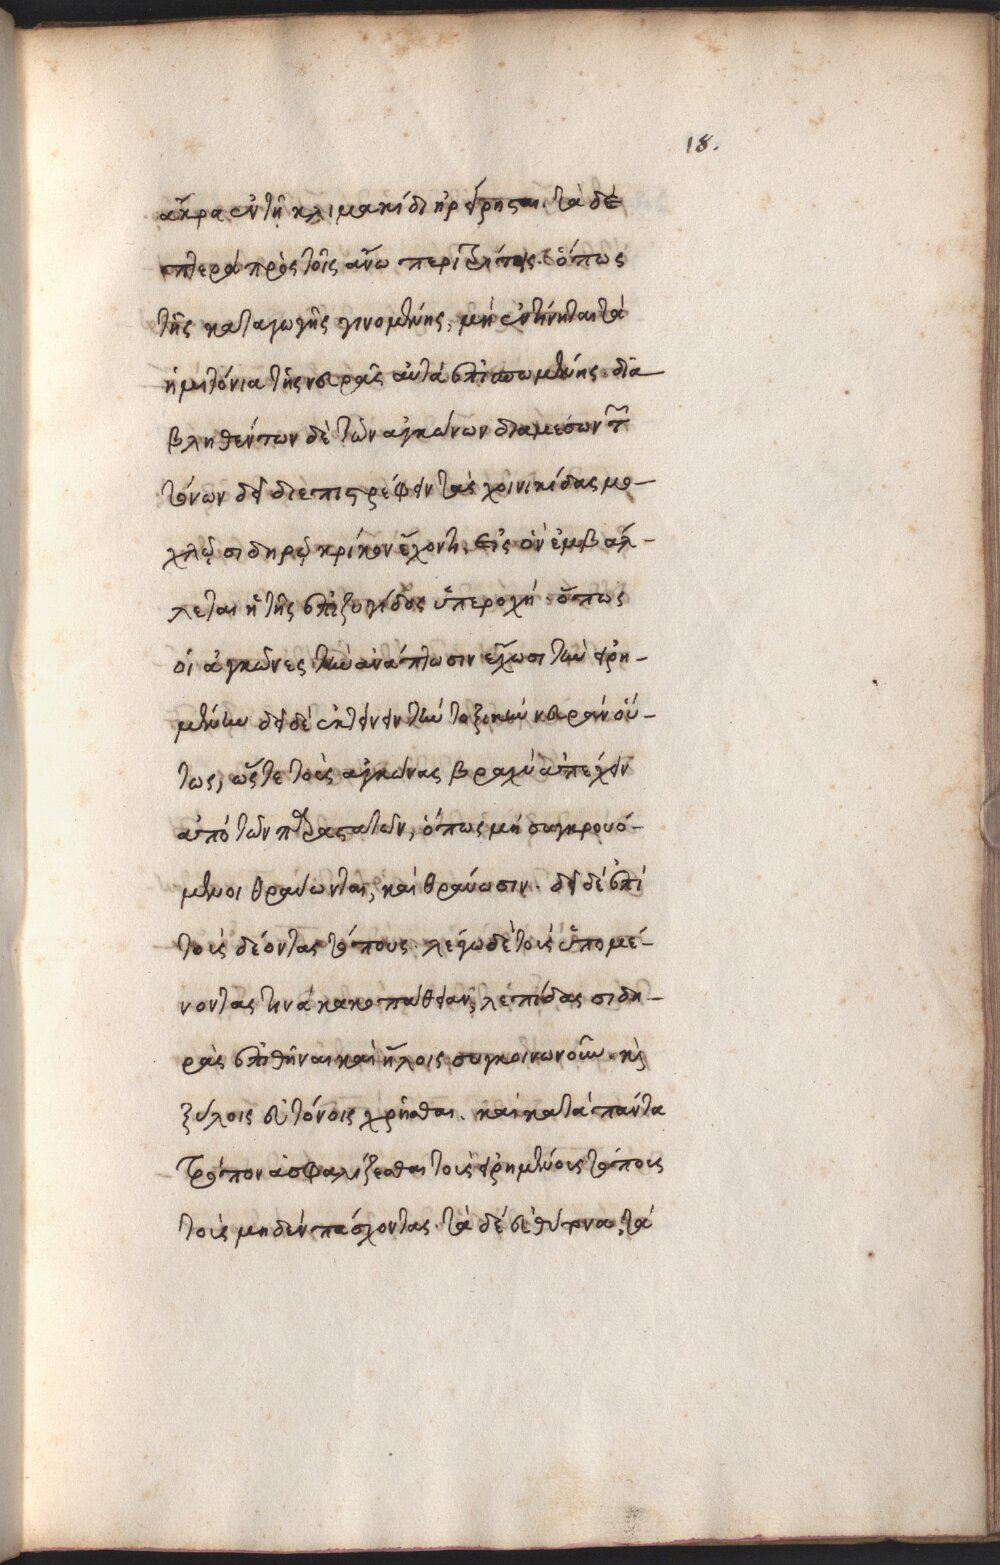 18.
ἄκρα ἐν τῇ κλιμακίδι ἠρείρησαι. τὰ δὲ
πτερὰ πρὸς τοῖς ἄνω περι όπως
τῆς καταγωγῆς γινομένης, μὴ ἐντήνηται τὰ
ἡμιτόνια τῆς νευρᾶς αὐτὰ ἐπισπωμένης. δια
βληθέντων δὲ τῶν ἀγκώνων διὰ μέσων τῶν
τόνων δεῖ διεπιστρέφειν τὰς χοινικίδας μο-
χλῷ σιδηρῷ κρίκον ἔχοντι. εἰς ὃν ἐμβάλ-
λεται ἡ τῆς ἐπιζυγίδος ὑπεροχή. ὅπως
οἱ ἀγκῶνες τὴν ἀνάπτωσιν ἔχωσι τὴν εἰρη-
μένην δεῖ δὲ ἐκτείνειν τὴν τοξικὴν νευρὰν οὕ-
τως, ὥστε τοὺς ἀγκῶνας βραχὺ ἀπέχειν
ἀπὸ τῶν παραστατῶν, ὅπως μὴ συγκρουό-
μενοι θραύωνται, καὶ θραύωσιν. δεῖ δὲ ἐπὶ
τοὺς δέοντας τόπους. λέγω δὲ τοὺς ὑπομέ-
νοντάς τινα κακοπάθειαν, λεπίδας σιδη-
ρὰς ἐπιθῆναι καὶ ἥλοις συγκοινωνοῦν. καὶ
ξύλοις εὐτόνοις χρῆσθαι. καὶ κατὰ πάντα
τρόπον ἀσφαλίζεσθαι τοὺς εἰρημένους τόπους
τοὺς μηδὲν πάσχοντας. τὰ δὲ εὐθύτονα, τὰ